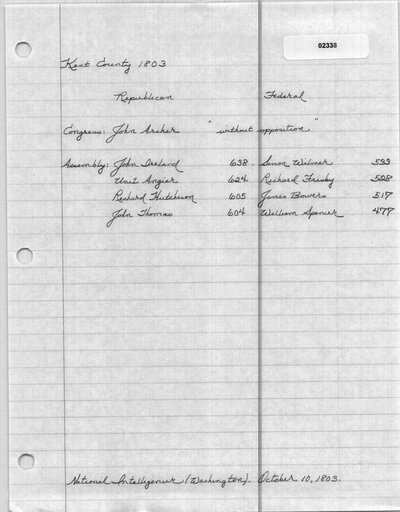 02338
Kent County 1803
Republican Federal
Congress: John Archer "without opposition"
Assembly: John Ireland 638. Simon Wilmer 533
Unit Angier 624 Richard Frisby 508
Richard Hutcheson 605 James Bowers 517
John Thomas 604 William Spencer 477
National Intelligencer (Washington). October 10, 1803.